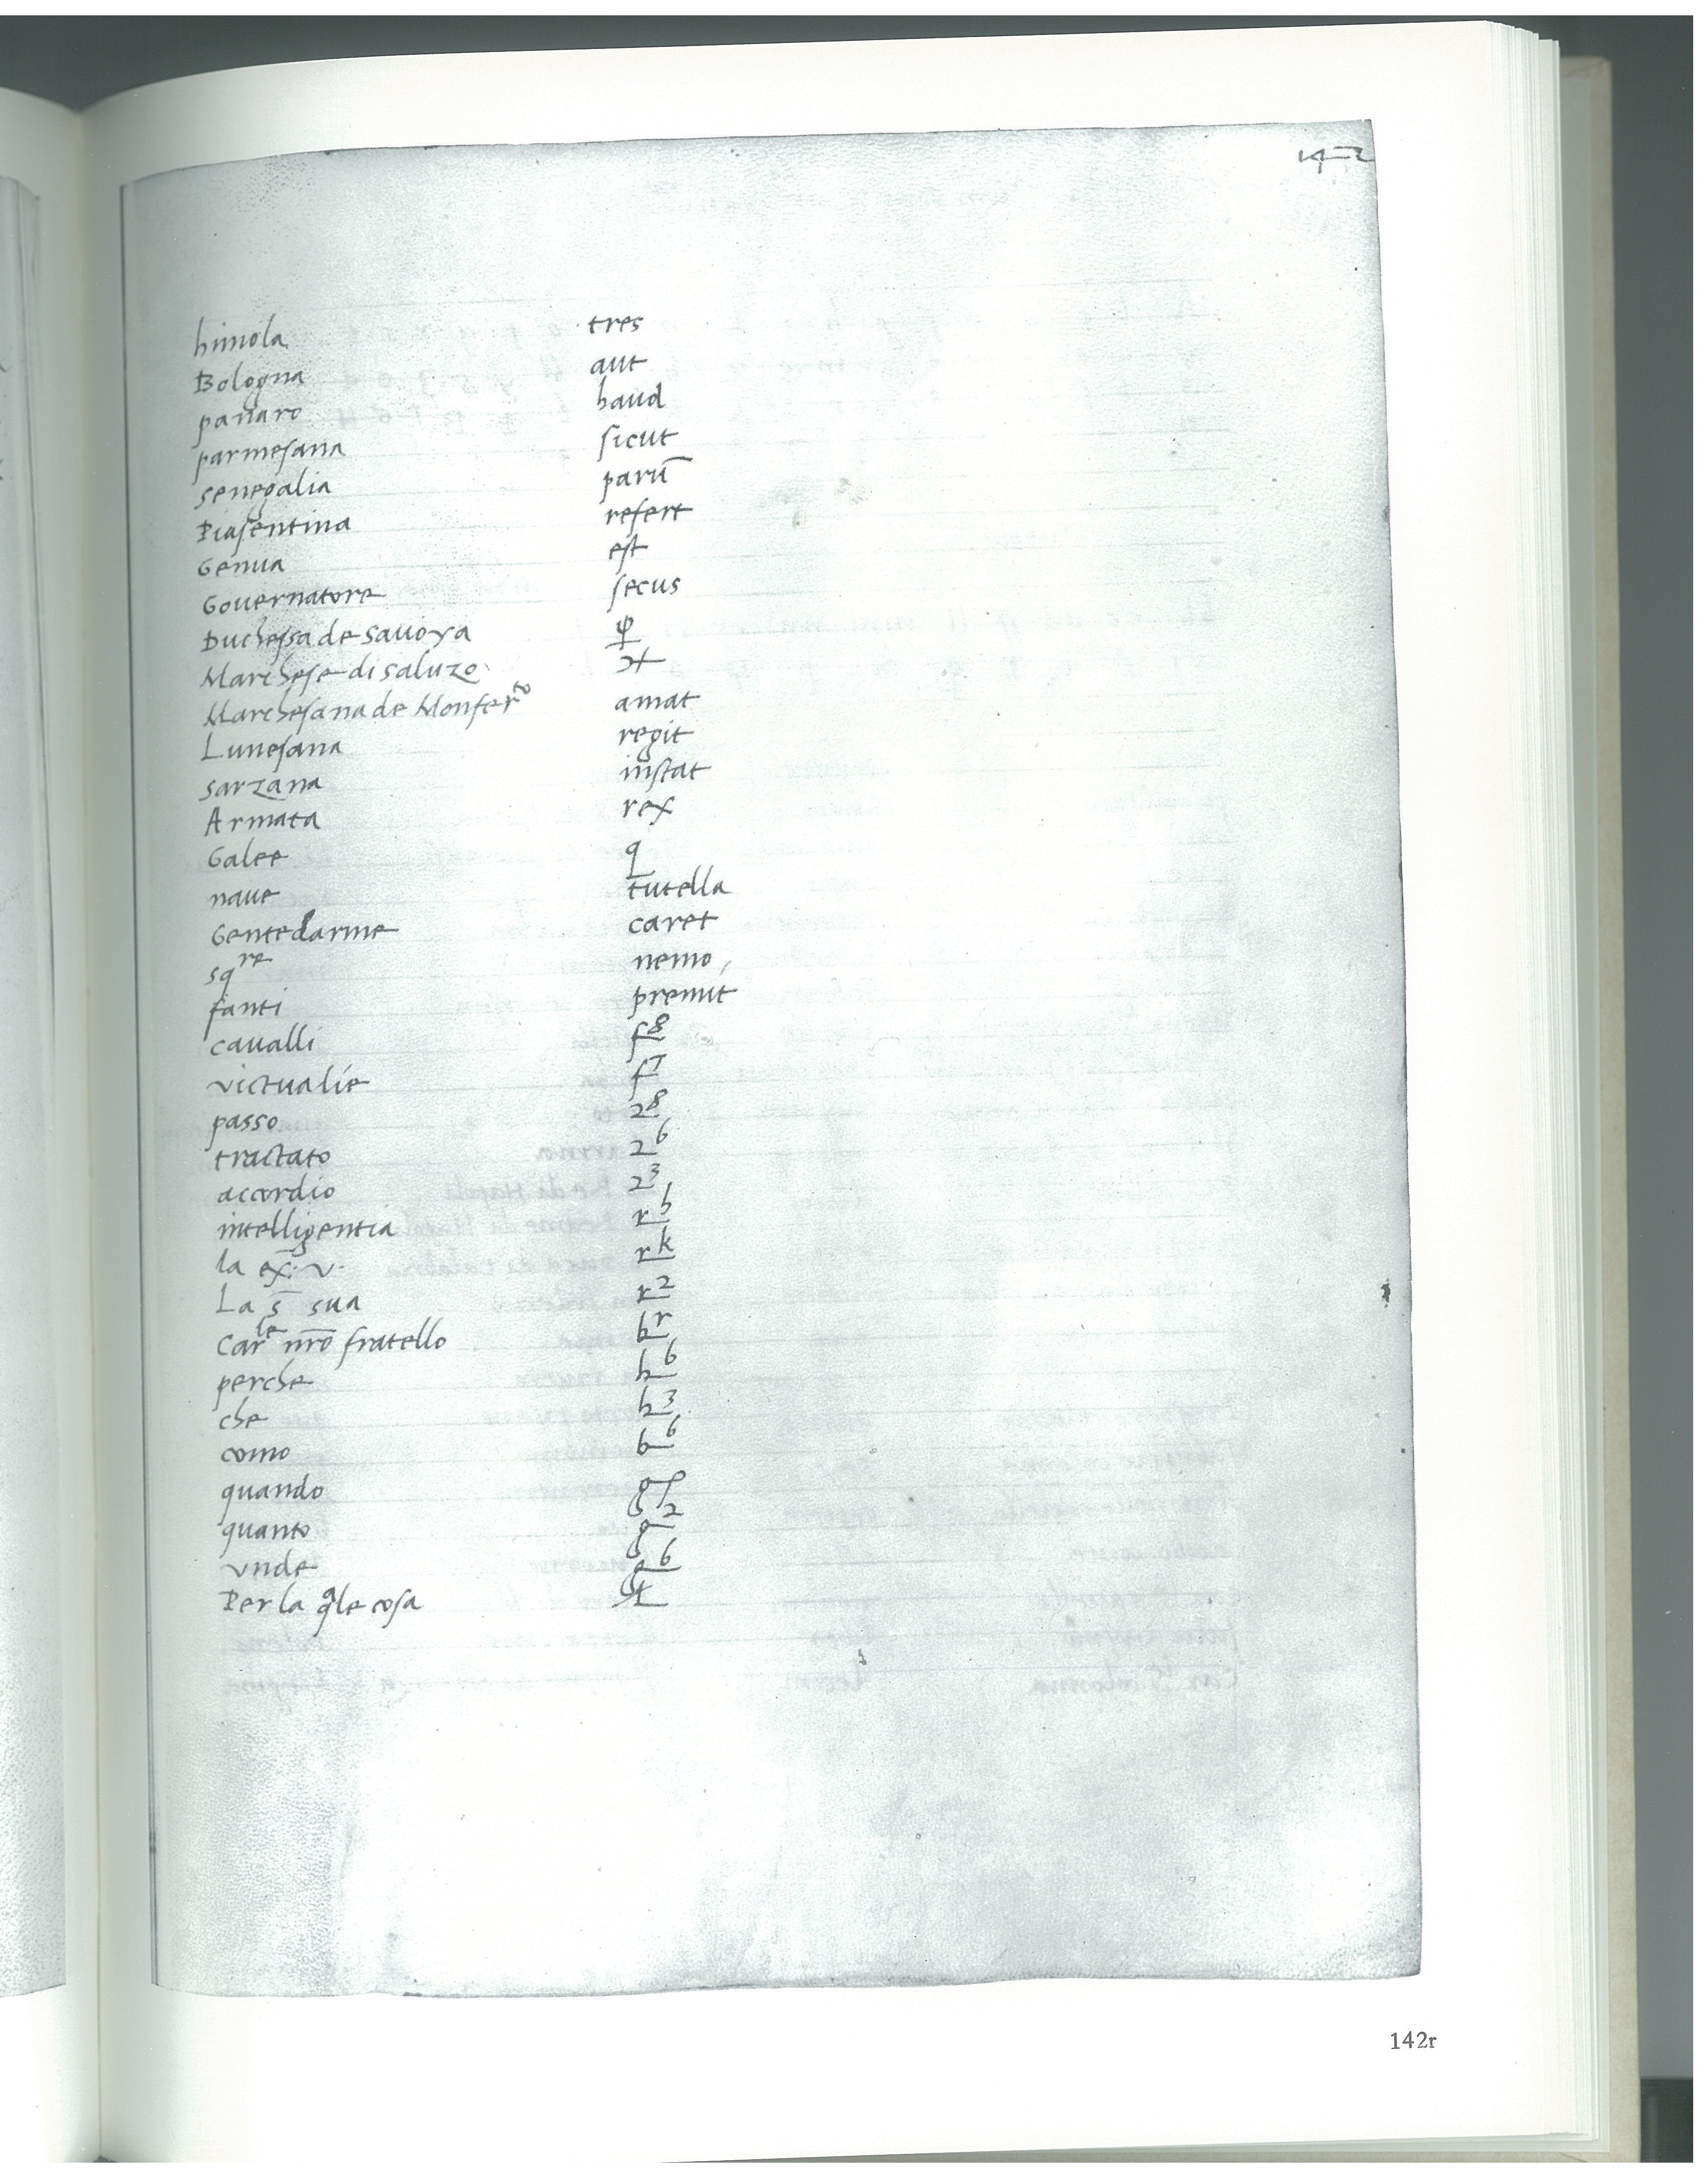 142
himola tres
Bologna aut
panaro haud
parmesana sicut
senegalia parū
Piasentina refert
Genua est
Gouernatore secus
Duchessa de sauoya φ
Marchese di saluzo
Marchesana de Monferto amat
Lunesana regit
sarzana instat
Armata rex
Galee q
naue tutella
Gente darme caret
sqre nemo
fanti premit
caualli f8
victualie f7
passo 28
tractato 26
acordio 23
intelligentia rh
la ex. v. rk
La s̄ sua r2
Carle nrō fratello br
perche h6
che h3
como b6
quando gf
quanto g2
vnde g6
Per la qle cosa
142r